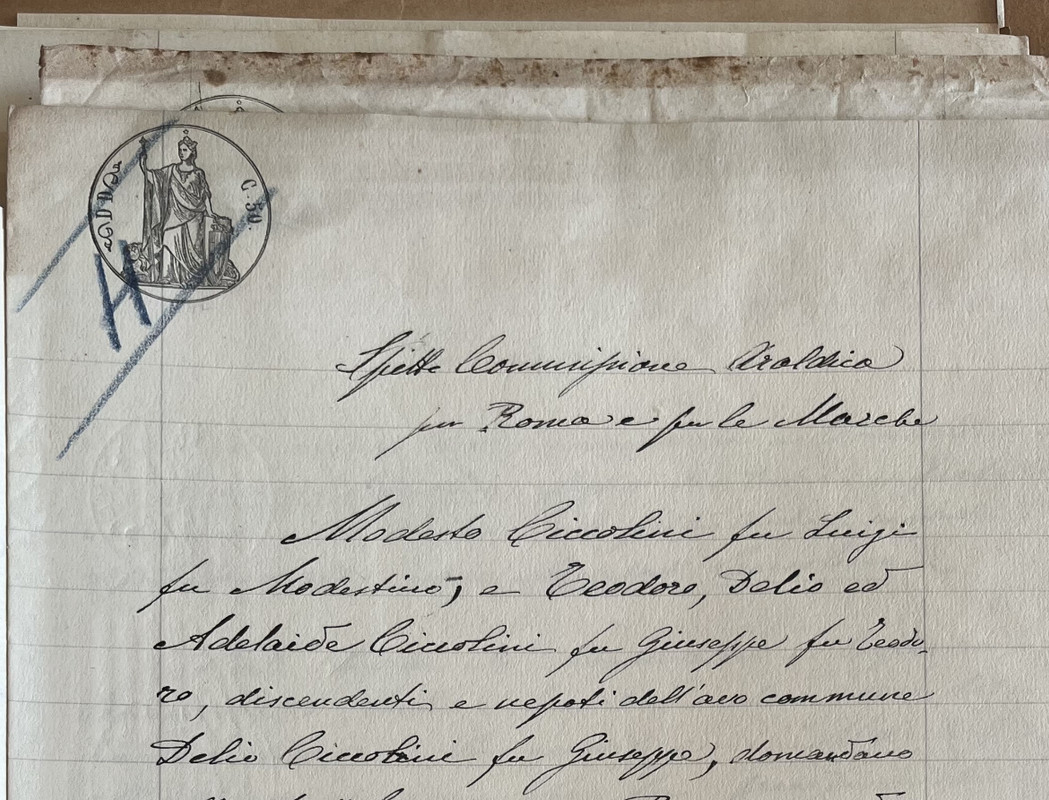 C. 50.
H
Spett.e Commissione Araldica
per Roma e per le Marche
Modesto Ciccolini fu Luigi
fu Modestino, e Teodoro, Delio ed
Adelaide Ciccolini fu Giuseppe fu Teodo-
ro, discendenti e nepoti dell'avo commune
Delio Ciccolini fu Giuseppe, domandano